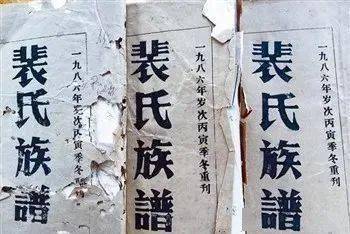 一九八六年岁次丙寅季冬重刊
裴氏族譜
一九八六年岁次丙寅季冬重刊
裴氏族譜
一九八六年岁次丙寅季冬重刊
裴氏族譜